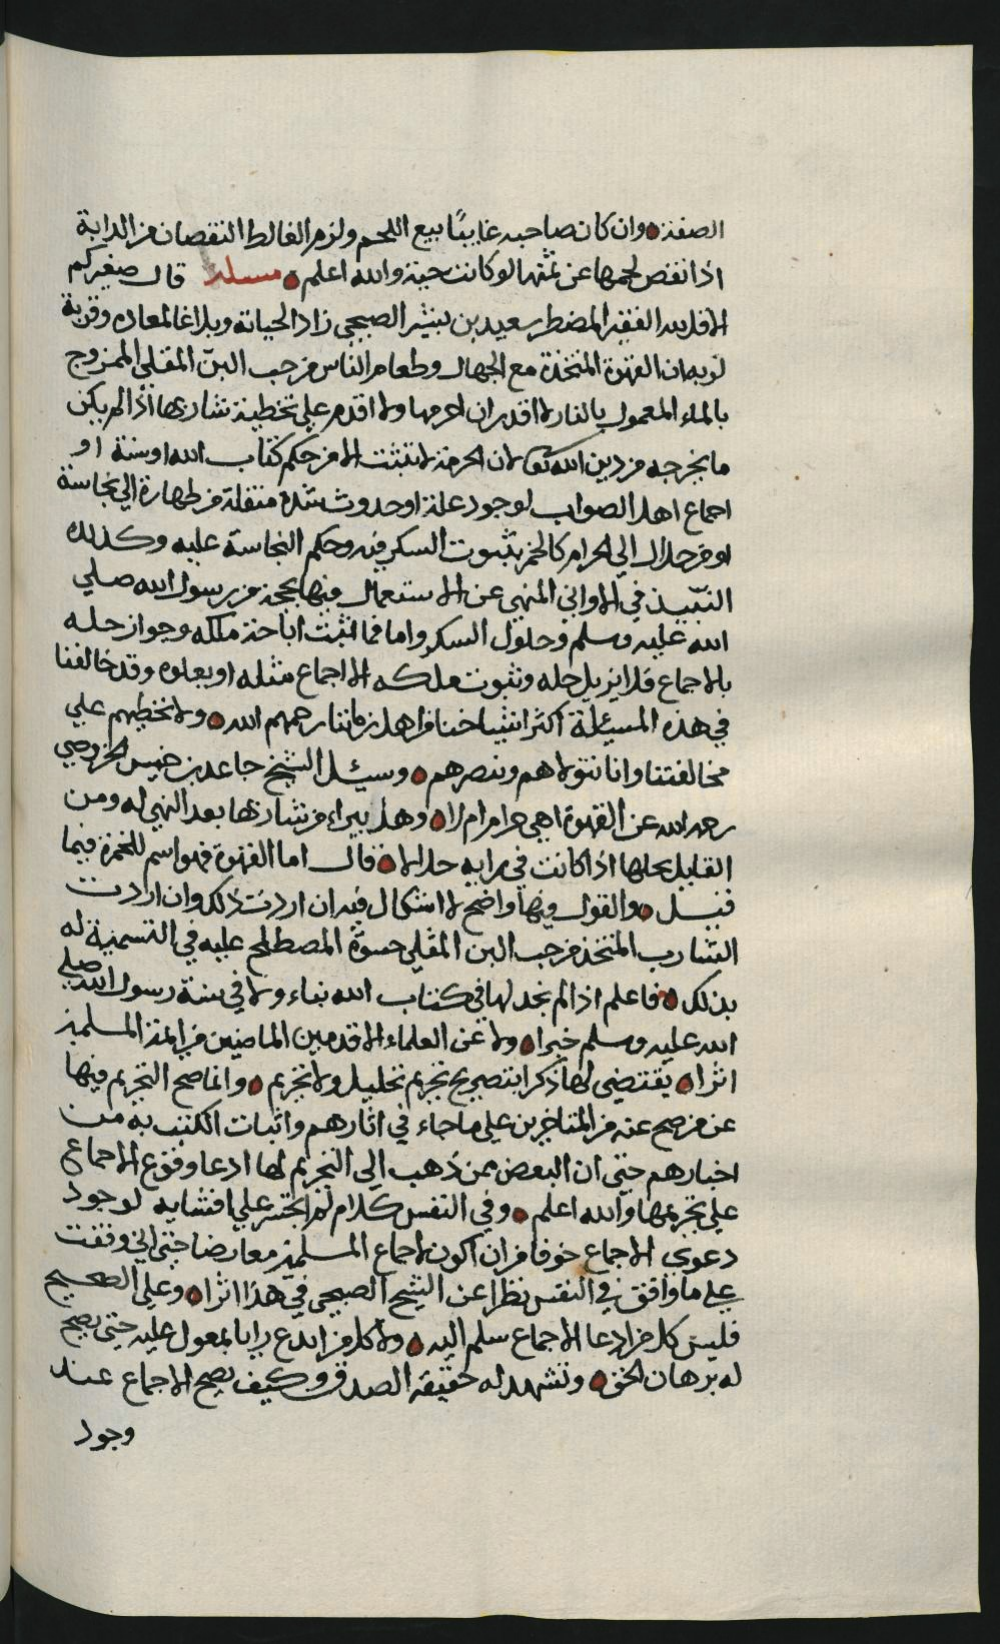 الصفة وان كان صاحبه غايبًا بيع اللحم ولزم الغالط النقصان من الدابة
اذا نقص لحمها عن ثمنها لو كانت حية والله اعلم مسئلة قال صغيركم
الاقل لله الفقير المضطر سعيد بن بشير الصبحي زاد الحياته وبلاغا لمعاده وقربة
لربه ان القهوة المتخذة مع الجهال وطعام الناس من حب البنّ المقلي الممزوج
بالماء المعمول بالنار لا اقدر ان احرمها ولا اقدم علي تخطية شاربها اذا لم يكن
ما يخرجه من دين الله تعالى لان الحرمة لا تثبت الا من حكم كتاب الله او سنة او
اجماع اهل الصواب لوجود علة او حدوث شدة منتقلة من طهارة الي نجاسة
او من حلال الي الحرام كالخمر بثبوت السكر فيه وحكم النجاسة عليه وكذلك
النبيذ في الاواني المنهي عن الاستعمال فيها بحجة من رسول الله صلي
الله عليه وسلم وحلول السكر واما فما اثبت اباحة ملكه وجواز حله
بالاجماع فلا يزيل حله وثبوت ملكه الا اجماع مثله او يعلوه وقد خالفنا
في هذه المسيئلة اكثر اشياخنا من اهل زماننا رحمهم الله ولا نخطيهم علي
مخالفتنا وانا نتولاهم وننصرهم وسيئل الشيخ جاعد بن خميس الخروصي
رحمه الله عن القهوة اهي حرام ام لا وهل يبراء من شاربها بعد النهي له ومن
القايل بحلها اذا كانت في رايه حلالا قال اما القهوة فهو اسم للخمرة فيما
قيل والقول فيها واضح لا اشكال فيه ان اردت ذلك وان اردت
الشارب المتخذ من حب البن المقلي حسوة المصطلح عليه في التسمية له
بذلك فاعلم اذا لم نجد لها في كتاب الله نباء ولا في سنة رسول الله صلي
الله عليه وسلم خبرا ولا عن العلماء الاقدمين الماضين من ايمة المسلمين
اثرا يقتضي لها ذكرا بتصريح تحريم تحليل ولا تحريم وانما صح التحريم فيها
عن من صح عنه من المتاخرين علي ما جاء في اثارهم واثبات الكتب به من
اخبارهم حتي ان البعض ممن ذهب الي التحريم لها ادعا وقوع الاجماع
علي تحريمها والله اعلم وفي النفس كلام لم اجتر علي افشايه لوجود
دعوى الاجماع خوفا من ان اكون لاجماع المسلمين معارضا حتي اني وقفت
علي ما وافق في النفس نظرا عن الشيخ الصبحي في هذا اثرا وعلي الصحيح
فليس كل من ادعا الاجماع سلم اليه ولا كل من ابدع رايا بمعول عليه حتي يصح
له برهان الحق وتشهد له حقيقة الصدق وكيف يصح الاجماع عند
وجود